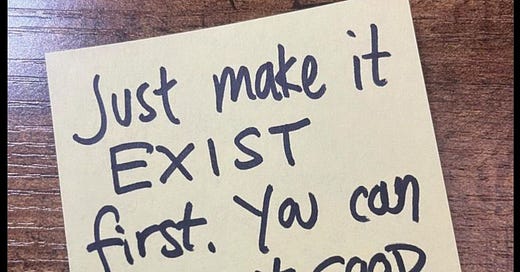 Just make it
EXIST
first. You can
GOOD